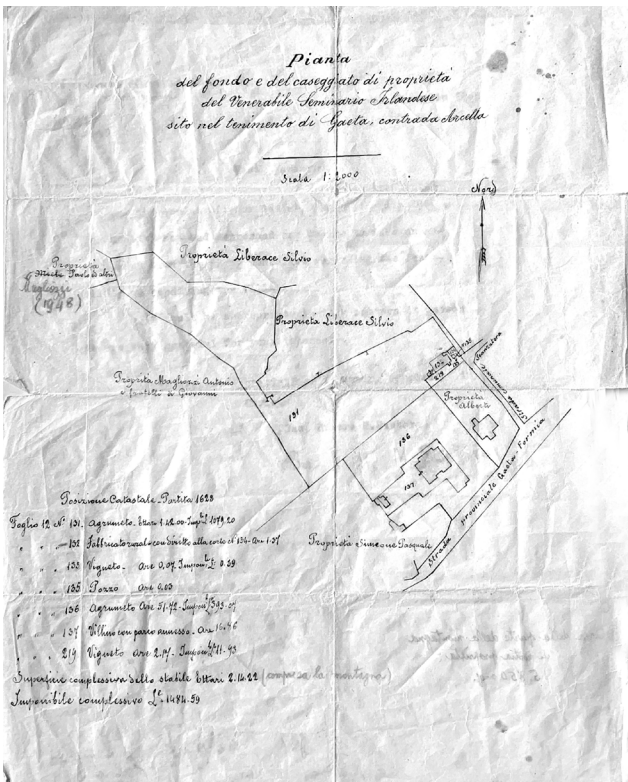 Pianta
del fondo e del caseggiato di proprietà
del Venerabile Seminario Irlandese
sito nel tenimento di Gaeta, contrada Arcella
Scala 1:2000
Nord
Proprietà Liberace Silvio
Proprietà
Paolo ed altri
Magliozzi
(1948)
Proprietà Liberace Silvio
Proprietà Magliozzi Antonio
e fratello di Giovanni
131
132
219
Strada comunale
Proprietà
Alberti
136
137
Strada provinciale Gaeta-Formia
Proprietà Simeone Pasquale
Posizione Catastale - Partita 1628
Foglio 12 N° 131. Agrumeto - Ettari 1.42.00 - Impon. £ 1079.20
" " " 132 Fabbricato rurale con diritto alla corte N° 134 - Are 1.37
" " " 133 Vigneto - Are 0.07. Impon. £ 0.39
" " " 135 Pozzo Are 0.03
" " " 136 Agrumeto Are 51.72 - Impon. £ 393.07
" " " 137 Villino con parco annesso - Are 16.46
" " " 219 Vigneto Are 2.17 - Impon. £ 11.93
Superficie complessiva dello stabile Ettari 2.14.22
Imponibile complessivo £. 1484.59